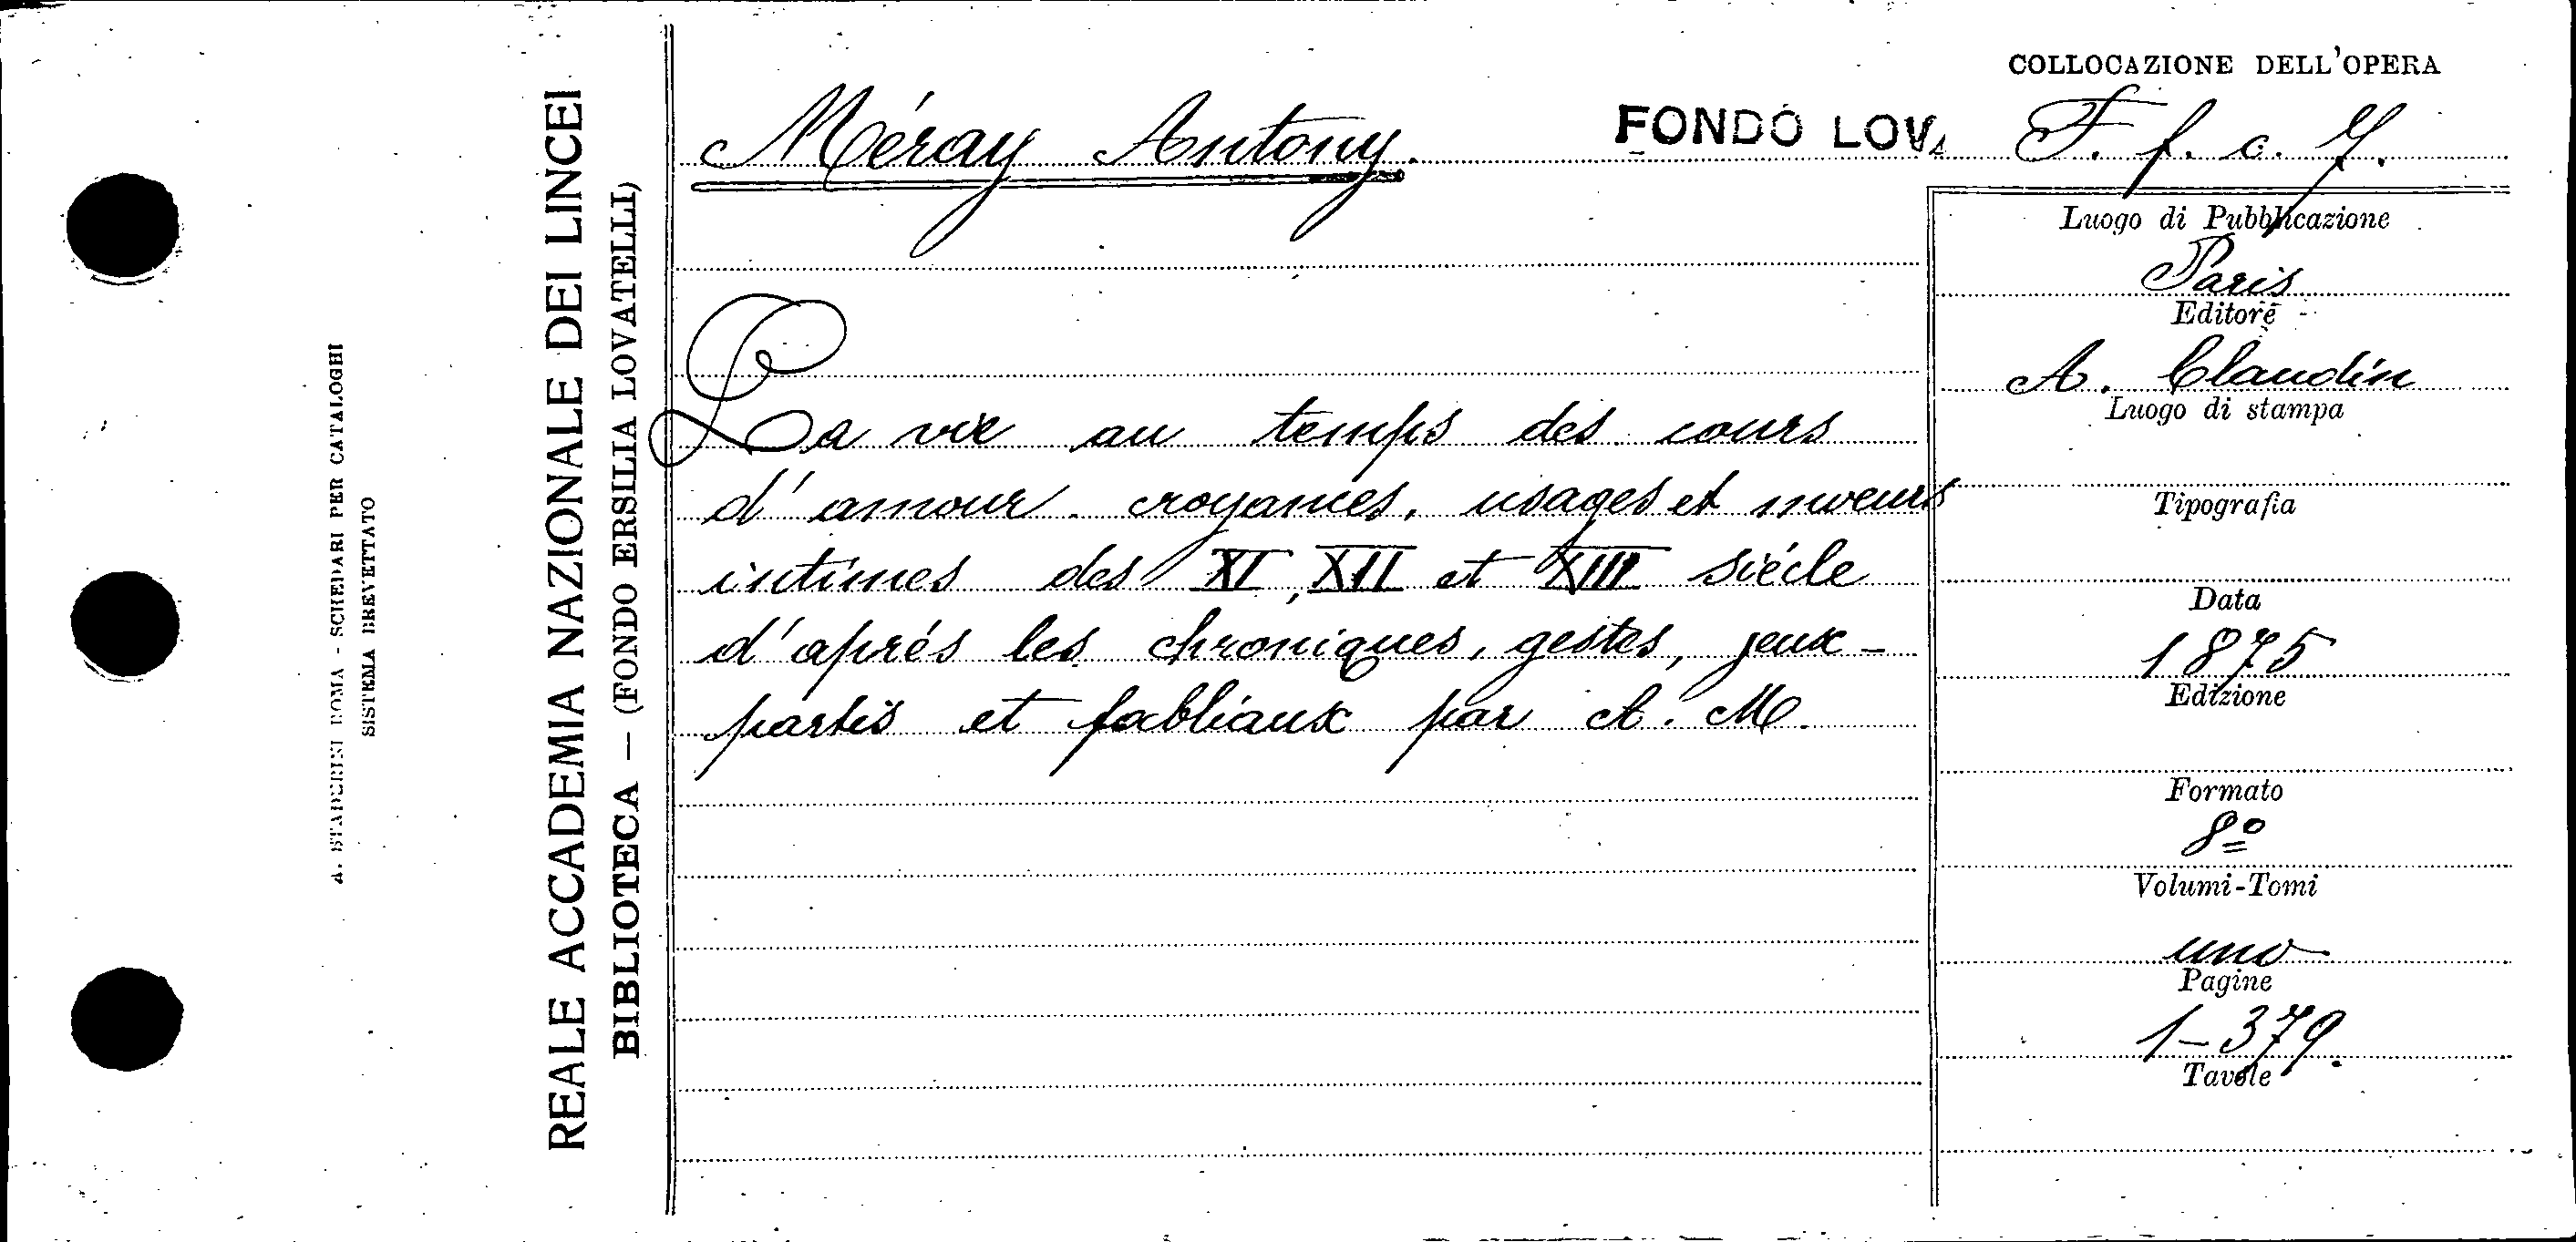 A. STADERINI ROMA - SCHEDARI PER CATALOGHI
SISTEMA BREVETTATO
REALE ACCADEMIA NAZIONALE DEI LINCEI
BIBLIOTECA — (FONDO ERSILIA LOVATELLI)
COLLOCAZIONE DELL'OPERA
Méray Antony.
FONDO LOV. F. f. c. 7.
La vie au temps des cours
d'amour croyances, usages et mœurs
intimes des XI, XII et XIII siécle
d'aprés les chroniques, gestes, jeux-
partis et fabliaux par A. M.
Luogo di Pubblicazione
Paris
Editore
A. Claudin
Luogo di stampa
Tipografia
Data
1875
Edizione
Formato
8º
Volumi-Tomi
uno
Pagine
1-379.
Tavole